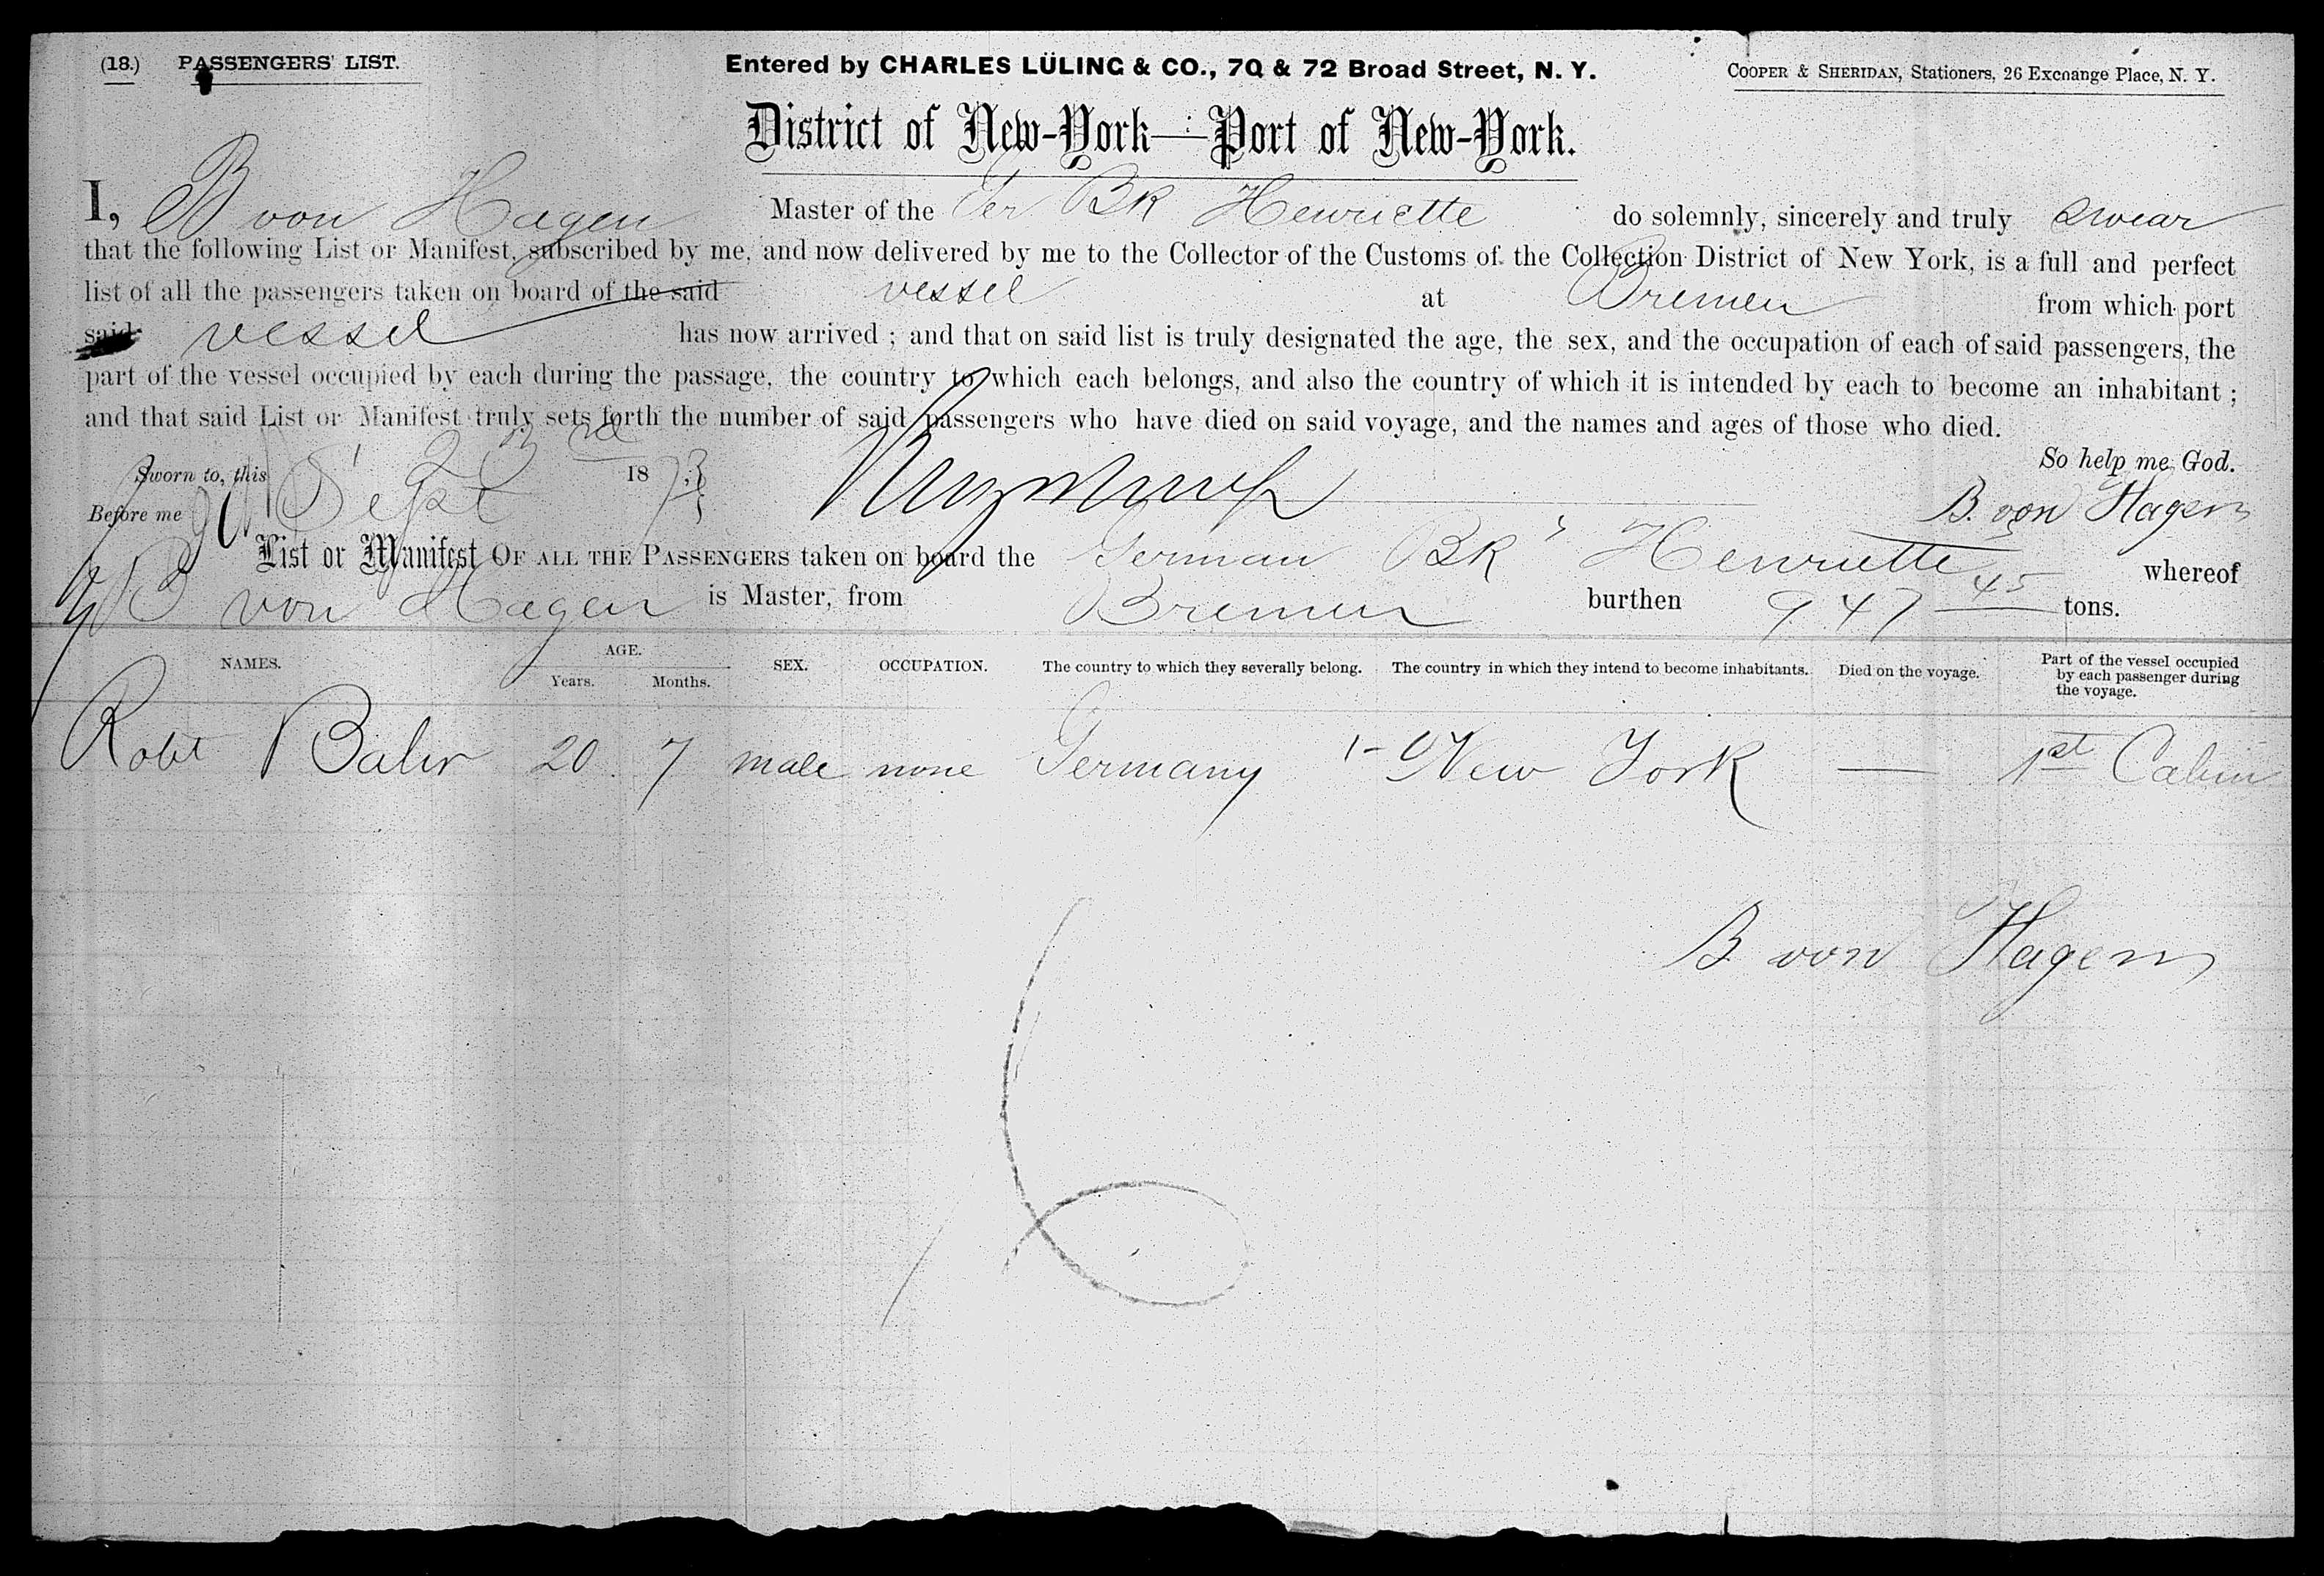 (18.) PASSENGERS' LIST. Entered by CHARLES LÜLING & CO., 70 & 72 Broad Street, N. Y. COOPER & SHERIDAN, Stationers, 26 Excnange Place, N. Y.
District of New-York—Port of New-York.
I, B von Hagen Master of the Ger Bk Henriette do solemnly, sincerely and truly swear
that the following List or Manifest, subscribed by me, and now delivered by me to the Collector of the Customs of the Collection District of New York, is a full and perfect
list of all the passengers taken on board of the said vessel at Bremen from which port
said vessel has now arrived ; and that on said list is truly designated the age, the sex, and the occupation of each of said passengers, the
part of the vessel occupied by each during the passage, the country to which each belongs, and also the country of which it is intended by each to become an inhabitant ;
and that said List or Manifest truly sets forth the number of said passengers who have died on said voyage, and the names and ages of those who died.
So help me God.
Sworn to, this 23rd 1873
Before me Sept B. von Hagen
List or Manifest OF ALL THE PASSENGERS taken on board the German Bk Henriette whereof
B von Hagen is Master, from Bremen burthen 947 45 tons.
NAMES. AGE. Years. Months. SEX. OCCUPATION. The country to which they severally belong. The country in which they intend to become inhabitants. Died on the voyage. Part of the vessel occupied by each passenger during the voyage.
Robt 20 7 male none Germany New York — 1st Cabin
B von Hagen